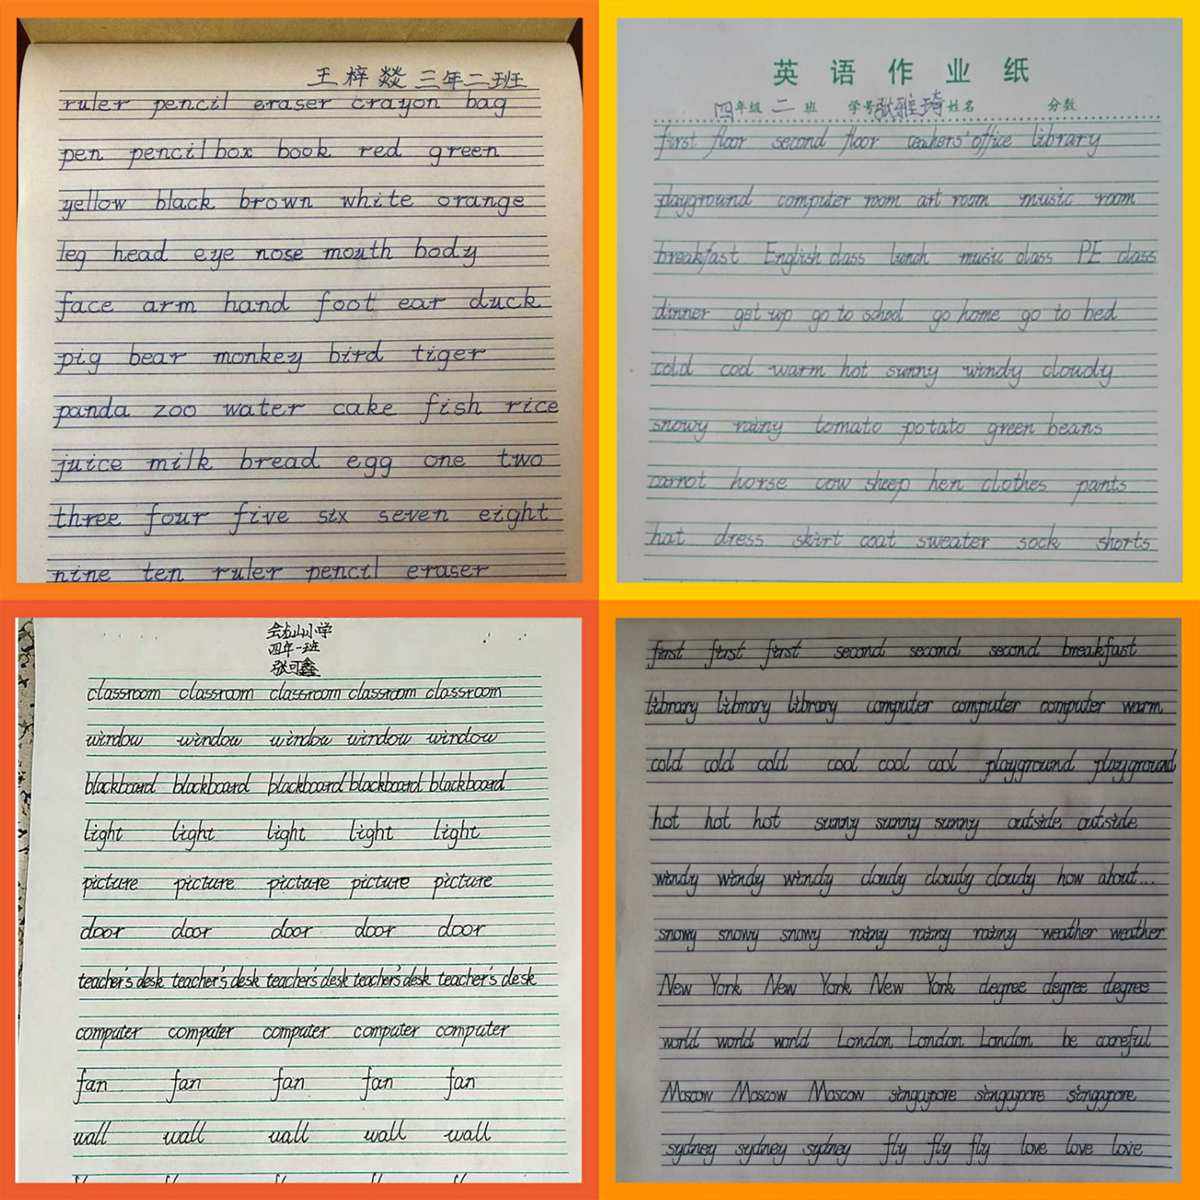 王梓燚 三年二班
ruler pencil eraser crayon bag
pen pencil box book red green
yellow black brown white orange
leg head eye nose mouth body
face arm hand foot ear duck
pig bear monkey bird tiger
panda zoo water cake fish rice
juice milk bread egg one two
three four five six seven eight
nine ten ruler pencil eraser
英语作业纸
四年级 二 班 学号 张雅琦 姓名 分数
first floor second floor teachers' office library
playground computer room art room music room
breakfast English class lunch music class PE class
dinner get up go to school go home go to bed
cold cool warm hot sunny windy cloudy
snowy rainy tomato potato green beans
carrot horse cow sheep hen clothes pants
hat dress skirt coat sweater sock shorts
山小学
四年一班
张可鑫
classroom classroom classroom classroom classroom
window window window window window
blackboard blackboard blackboard blackboard blackboard
light light light light light
picture picture picture picture picture
door door door door door
teacher's desk teacher's desk teacher's desk teacher's desk teacher's desk
computer computer computer computer computer
fan fan fan fan fan
wall wall wall wall wall
first first first second second second breakfast
library library library computer computer computer warm
cold cold cold cool cool cool playground playground
hot hot hot sunny sunny sunny outside outside
windy windy windy cloudy cloudy cloudy how about...
snowy snowy snowy rainy rainy rainy weather weather
New York New York New York degree degree degree
world world world London London London be careful
Moscow Moscow Moscow singapore singapore singapore
sydney sydney sydney fly fly fly love love love